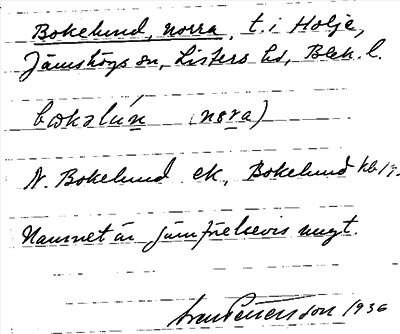 Bokelund, norra, t. i Holje,
Jämshögs sn, Listers hd, Blek. l.
bokəlún (nora)
N. Bokelund ek, Bokelund
Namnet är jämförelsevis nugt.
Ivar Petersson 1936